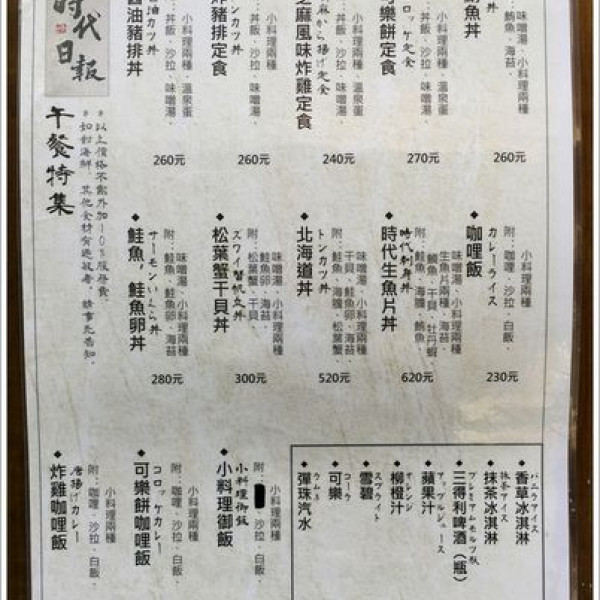 時代
日報
午餐特集
*以上價格不需外加10%服務費。
*如對海鮮、其他食材有過敏者,請事先告知。
鮪魚丼
附:
味噌湯、小料理兩種
鮪魚、海苔、
260元
可樂餅定食
コロッケ定食
附:
小料理兩種、溫泉蛋
丼飯、沙拉、味噌湯、
270元
芝麻風味炸雞定食
附:
小料理兩種
丼飯、沙拉、味噌湯、
240元
炸豬排定食
トンカツ
附:
小料理兩種
丼飯、沙拉、味噌湯、
260元
醬油豬排丼
醤油カツ丼
附:
小料理兩種、溫泉蛋
丼飯、沙拉、味噌湯、
260元
咖哩飯
カレーライス
附:咖哩、沙拉、白飯、
小料理兩種
230元
時代生魚片丼
時代刺身丼
附:鮭魚、海膽、鮪魚、
鯛魚、干貝、牡丹蝦
生魚片兩種、海苔、
味噌湯、小料理兩種
620元
北海道丼
トンカツ丼
附:鮭魚、海膽、松葉蟹、
干貝、鮭魚卵、海苔、
味噌湯、小料理兩種
520元
松葉蟹干貝丼
ズワイ蟹帆立丼
附:松葉蟹、干貝
鮭魚卵、海苔、
味噌湯、小料理兩種
300元
鮭魚,鮭魚卵丼
サーモンいくら丼
附:鮭魚、鮭魚卵、海苔、
味噌湯、小料理兩種
280元
小料理御飯
小料理御飯
附:
沙拉、白飯、
小料理兩種
可樂餅咖哩飯
コロッケカレー
附:咖哩、沙拉、白飯、
小料理兩種
炸雞咖哩飯
唐揚げカレー
附:咖哩、沙拉、白飯、
小料理兩種
香草冰淇淋
バニラアイス
抹茶冰淇淋
抹茶アイス
三得利啤酒(瓶)
プレミアムモルツ瓶
蘋果汁
アップルジュース
柳橙汁
オレンジ
雪碧
スプライト
可樂
コーラ
彈珠汽水
ラムネ